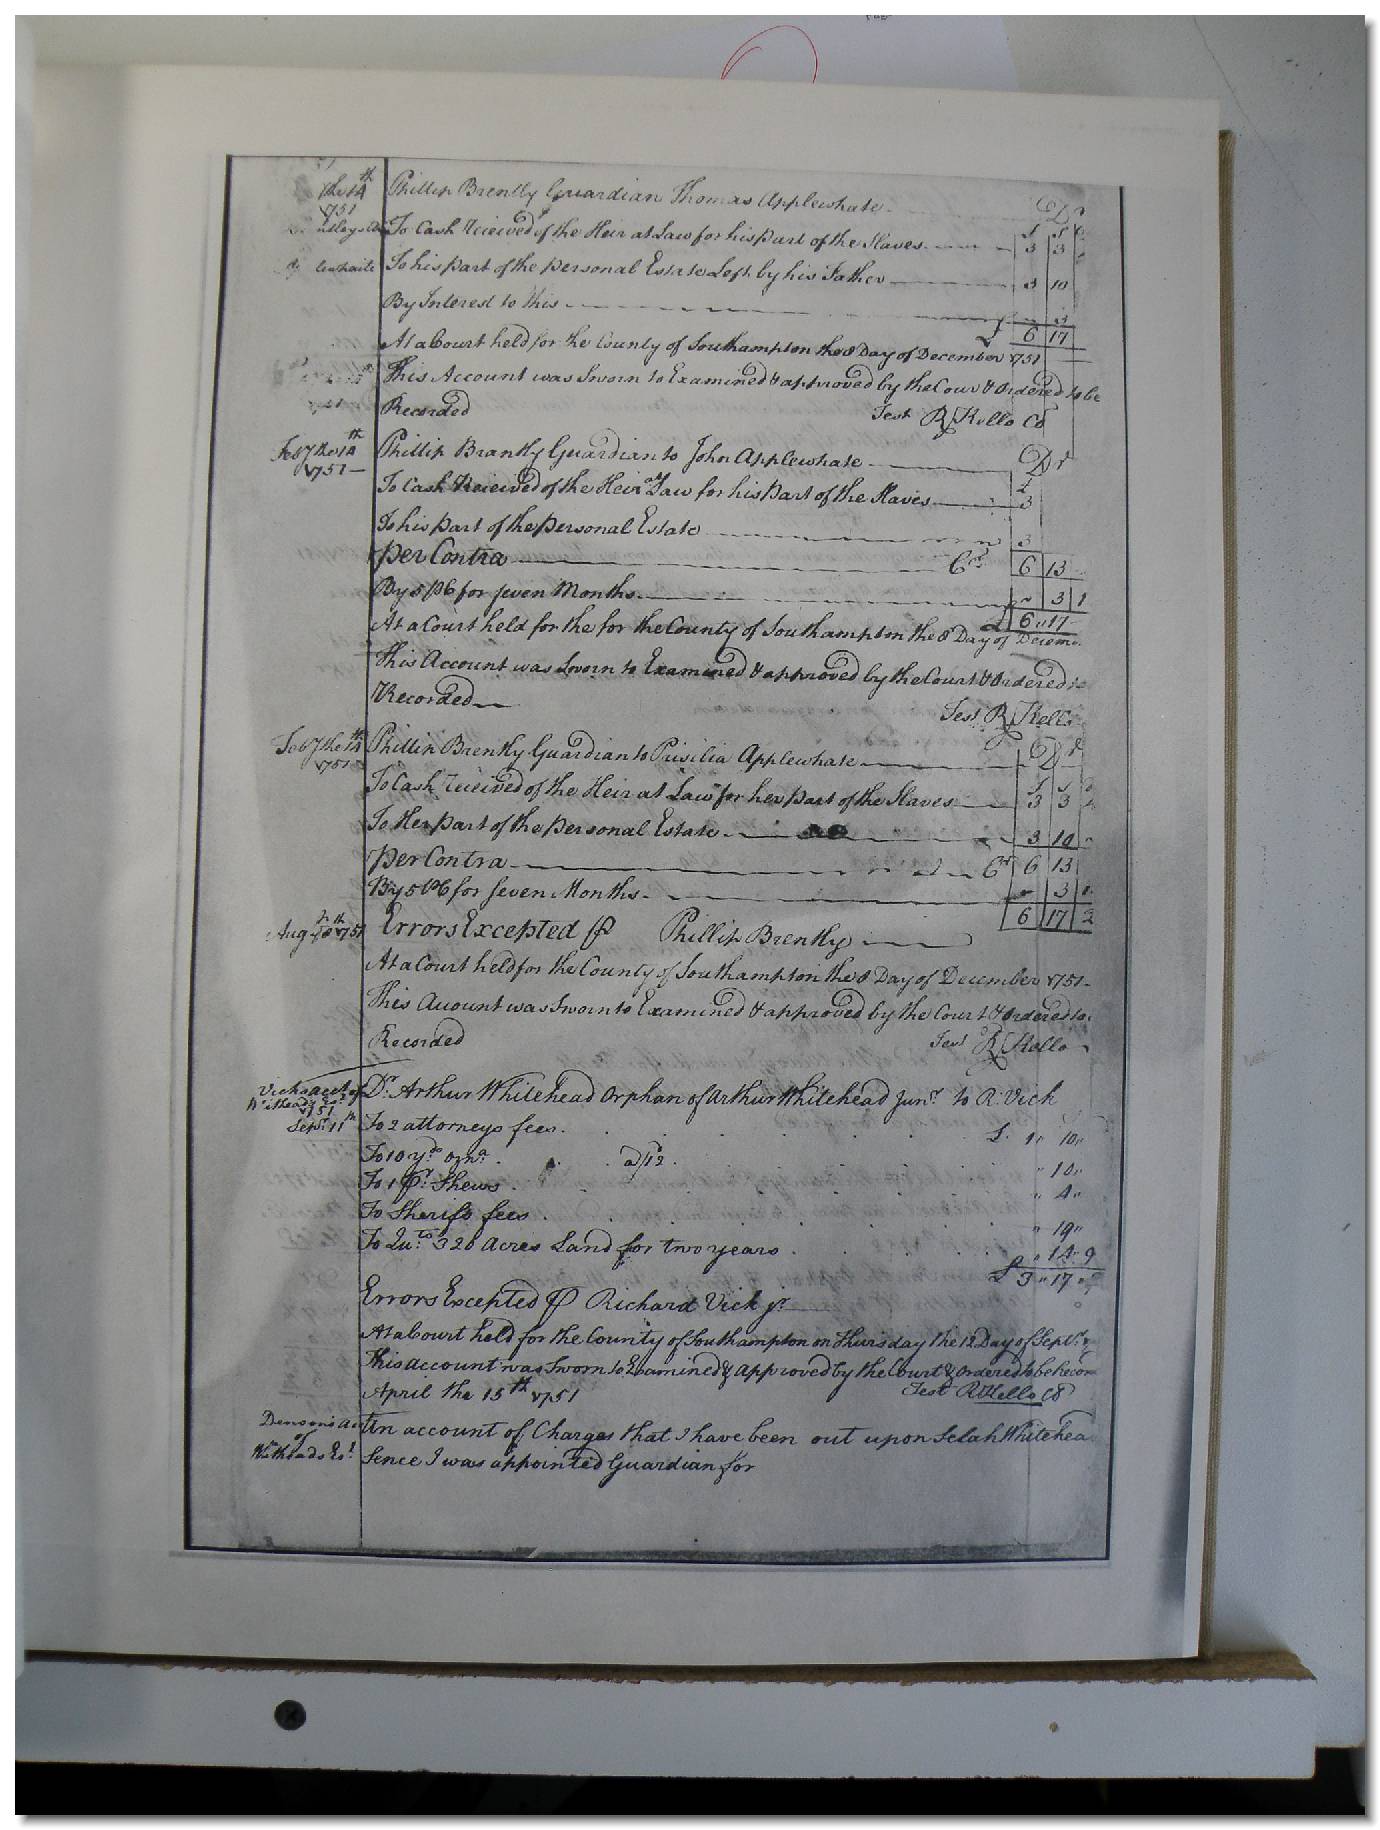 the 14th Phillip Brently Guardian Thomas Applewhate Dr
1751
To Cash Received of the Heir at Law for his part of the Slaves 3 3
To his part of the personal Estate Left by his Father 3 10
By Interest to this 3
£ 6 17
At a Court held for the County of Southampton the 8 Day of December 1751
This Account was Sworn to Examined & approved by the Court & Ordered to be
Recorded Test R Kello CC
Feby the 14th Phillip Brantly Guardian to John Applewhate Dr
1751
£
To Cash Received of the Heir at Law for his part of the Slaves 3
To his part of the personal Estate 3
Per Contra Cr 6 13
By 5 PC for seven Months 3 1
£ 6 " 17
At a Court held for the for the County of Southampton the 8 Day of Decem
This Account was Sworn to Examined & approved by the Court & Ordered
Recorded Test R Kello
Feby the 14th Phillip Brently Guardian to Prisilia Applewhate Dr
1751
To Cash Received of the Heir at Law for her part of the Slaves 3 3
To Her part of the personal Estate 3 10
Per Contra Cr 6 13
By 5 PC for seven Months 3
6 17 2
Aug 1751 Errors Excepted P Phillip Brently
At a Court held for the County of Southampton the 8 Day of December 1751
This Account was Sworn to Examined & approved by the Court & Ordered to
Recorded Test R Kello
Vicks acct of Dr. Arthur Whitehead Orphan of Arthur Whitehead Junr. to R. Vick
1751
Sepr. 11th To 2 attorneys fees £ 1 " 10 "
To 10 yds a/12 " 10 "
To 1 Pr. Shews " 4 "
To Sherifs fees " 19 "
To Qu 320 Acres Land for two years " 14 " 9
£ 3 " 17 " 9
Errors Excepted P Richard Vick jr
At a Court held for the County of Southampton on Thursday the 12 Day of Septr.
This account was Sworn to Examined & approved by the Court & Ordered to be Recor
April the 15th 1751 Test R Kello CC
Densons acct An account of Charges that I have been out upon Selah Whitehea
of
Whitheads Est Sence I was appointed Guardian for